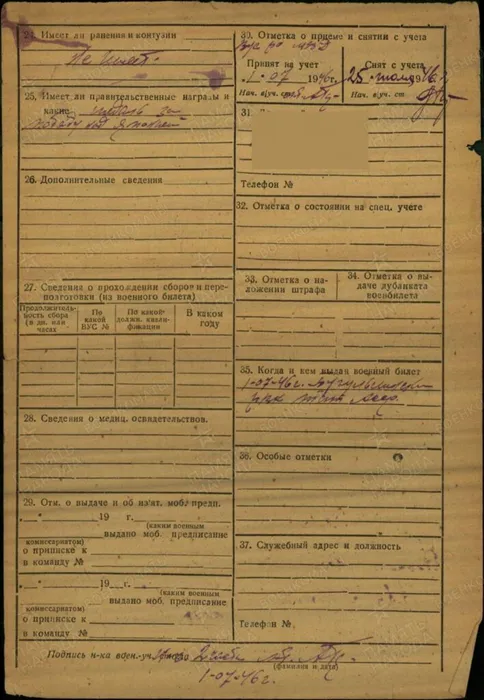 24. Имеет ли ранения и контузии
не имеет.
25. Имеет ли правительственные награды и
какие медаль за
победу над Японией
26. Дополнительные сведения
27. Сведения о прохождении сборов и пере-
позготовки (из военного билета)
Продолжитель-
ность сбора
(в дн. или
часах
По
какой
ВУС №
По какой
должн. квали-
фикации
В каком
году
28. Сведения о медиц. освидетельствов.
29. Отм. о выдаче и об из'ят. моб. предп.
„ “ 19 г.
(каким военным
выдано моб. предписание
комиссариатом)
о приписке к
в команду №
„ “ 19 г.
(каким военным
выдано моб. предписание
комиссариатом)
о приписке к
в команду №
30. Отметка о приеме и снятии с учета
Принят на учет
1-07 1946 г.
Нач. в/уч. ст
Снят с учета
25 1946 г.
Нач. в/уч. ст
31.
Телефон №
32. Отметка о состоянии на спец. учете
33. Отметка о на-
ложении штрафа
34. Отметка о вы-
даче дубликата
военбилета
35. Когда и кем выдан военный билет
1-07-46г. Бугульминским
РВК ТАССР.
36. Особые отметки
37. Служебный адрес и должность
Телефон №
Подпись н-ка воен.-уч.
(фамилия и дата)
1-07-46г.